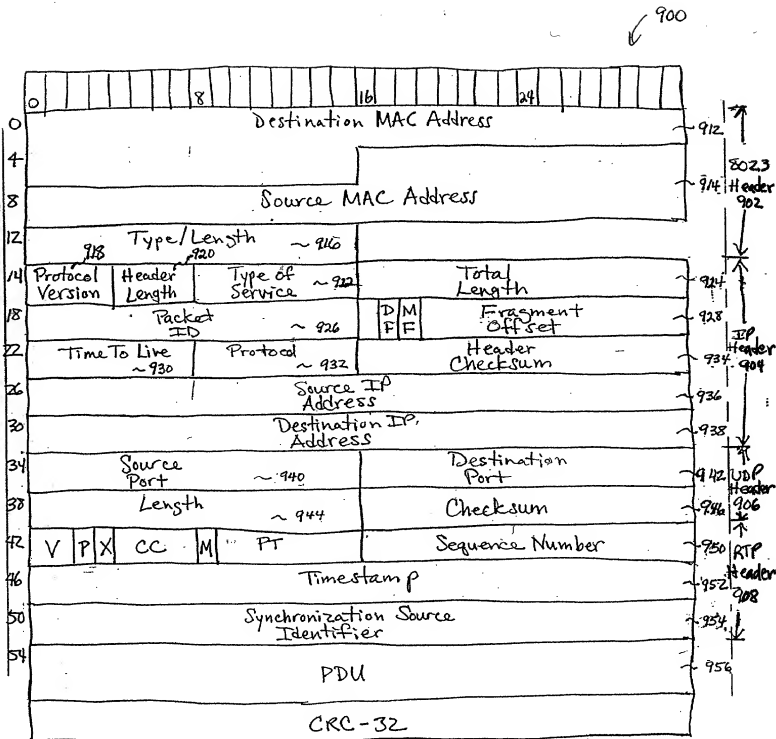 900
0 8 16 24
0 Destination MAC Address 912
4
802.3 Header 902
914
8 Source MAC Address
12 Type/Length ~916
918 920
14 Protocol Version Header Length Type of Service ~922 Total Length 924
18 Packet ID ~926 DF MF Fragment Offset 928
IP Header 904
22 Time To Live ~930 Protocol ~932 Header Checksum 934
26 Source IP Address 936
30 Destination IP Address 938
34 Source Port ~940 Destination Port 942
UDP Header 906
38 Length ~944 Checksum 946
42 V P X CC M PT Sequence Number 950
RTP Header 908
46 Timestamp 952
50 Synchronization Source Identifier 954
54 PDU 956
CRC-32